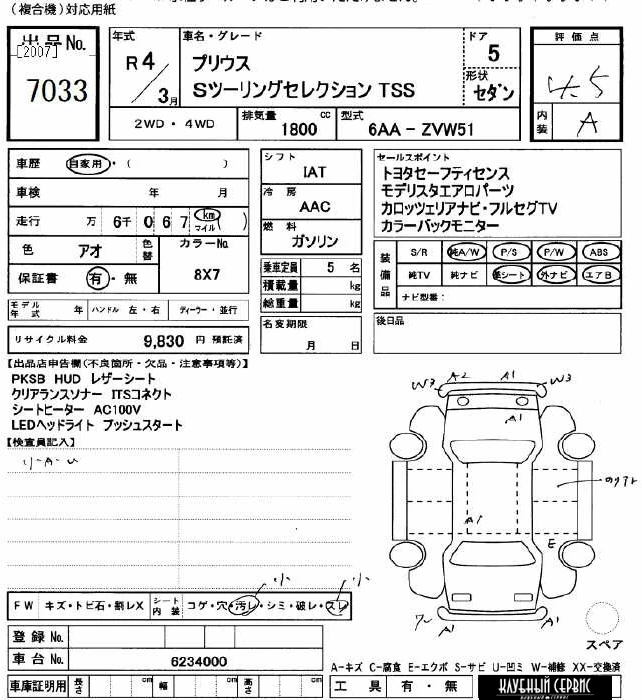 (複合機)対応用紙
出品No.
[2007]
7033
年式
R4/3月
車名・グレード
プリウス
Sツーリングセレクション TSS
ドア
5
形状
セダン
評価点
4.5
内装
A
2WD・4WD
排気量 1800 cc
型式 6AA-ZVW51
車歴 自家用・( )
車検 年 月
走行 万 6千 0 6 7 km マイル )
色 アオ 色替
カラーNo.
8X7
保証書 有・無
シフト
IAT
冷房
AAC
燃料
ガソリン
乗車定員 5 名
積載量 kg
総重量 kg
名変期限
月 日
セールスポイント
トヨタセーフティセンス
モデリスタエアロパーツ
カロッツェリアナビ・フルセグTV
カラーバックモニター
装備品
S/R 純A/W P/S P/W ABS
純TV 純ナビ 革シート 外ナビ エアB
ナビ型番:
後日品
モデル年式 年 ハンドル 左・右 ディーラー・並行
リサイクル料金 9,830 円 預託済
【出品店申告欄(不良箇所・欠品・注意事項等)】
PKSB HUD レザーシート
クリアランスソナー ITSコネクト
シートヒーター AC100V
LEDヘッドライト プッシュスタート
【検査員記入】
リ-A-U
W3 A2 A1 W3
A1
A1
E
A1 A1
FW キズ・トビ石・割レX
シート内装 コゲ・穴・汚レ・シミ・破レ・スレ
小 小
スペア
登録No.
車台No. 6234000
A-キズ C-腐食 E-エクボ S-サビ U-凹ミ W-補修 XX-交換済
車庫証明用 長さ cm 幅 cm 高さ cm
工具 有・無
КАУЕННЫЙ СЕРВИС